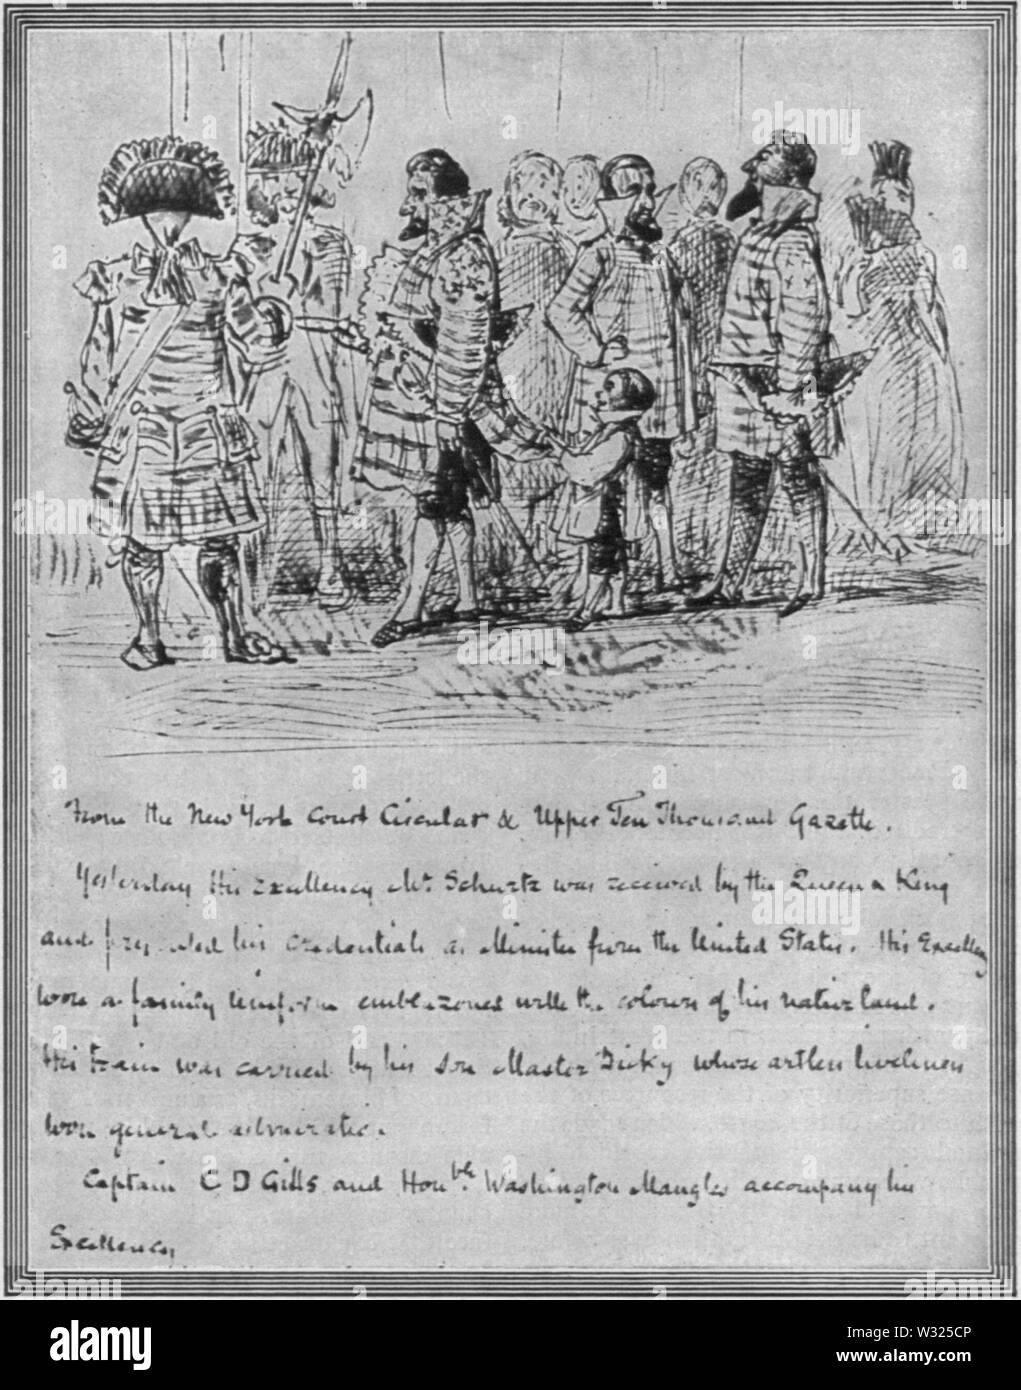 From the New York Court Circular & Upper Ten Thousand Gazette.
Yesterday His Excellency Mr. Schurtz was received by the Queen & King
and his credentials as Minister from the United States. His Excellency
wore a family uniform emblazoned with the colours of his native land.
His train was carried by his son Master Dicky whose artless liveliness
won general admiration.
Captain C D Gills and Honble. Washington Mangles accompany his
Excellency
alamy
Image ID: W325CP
www.alamy.com